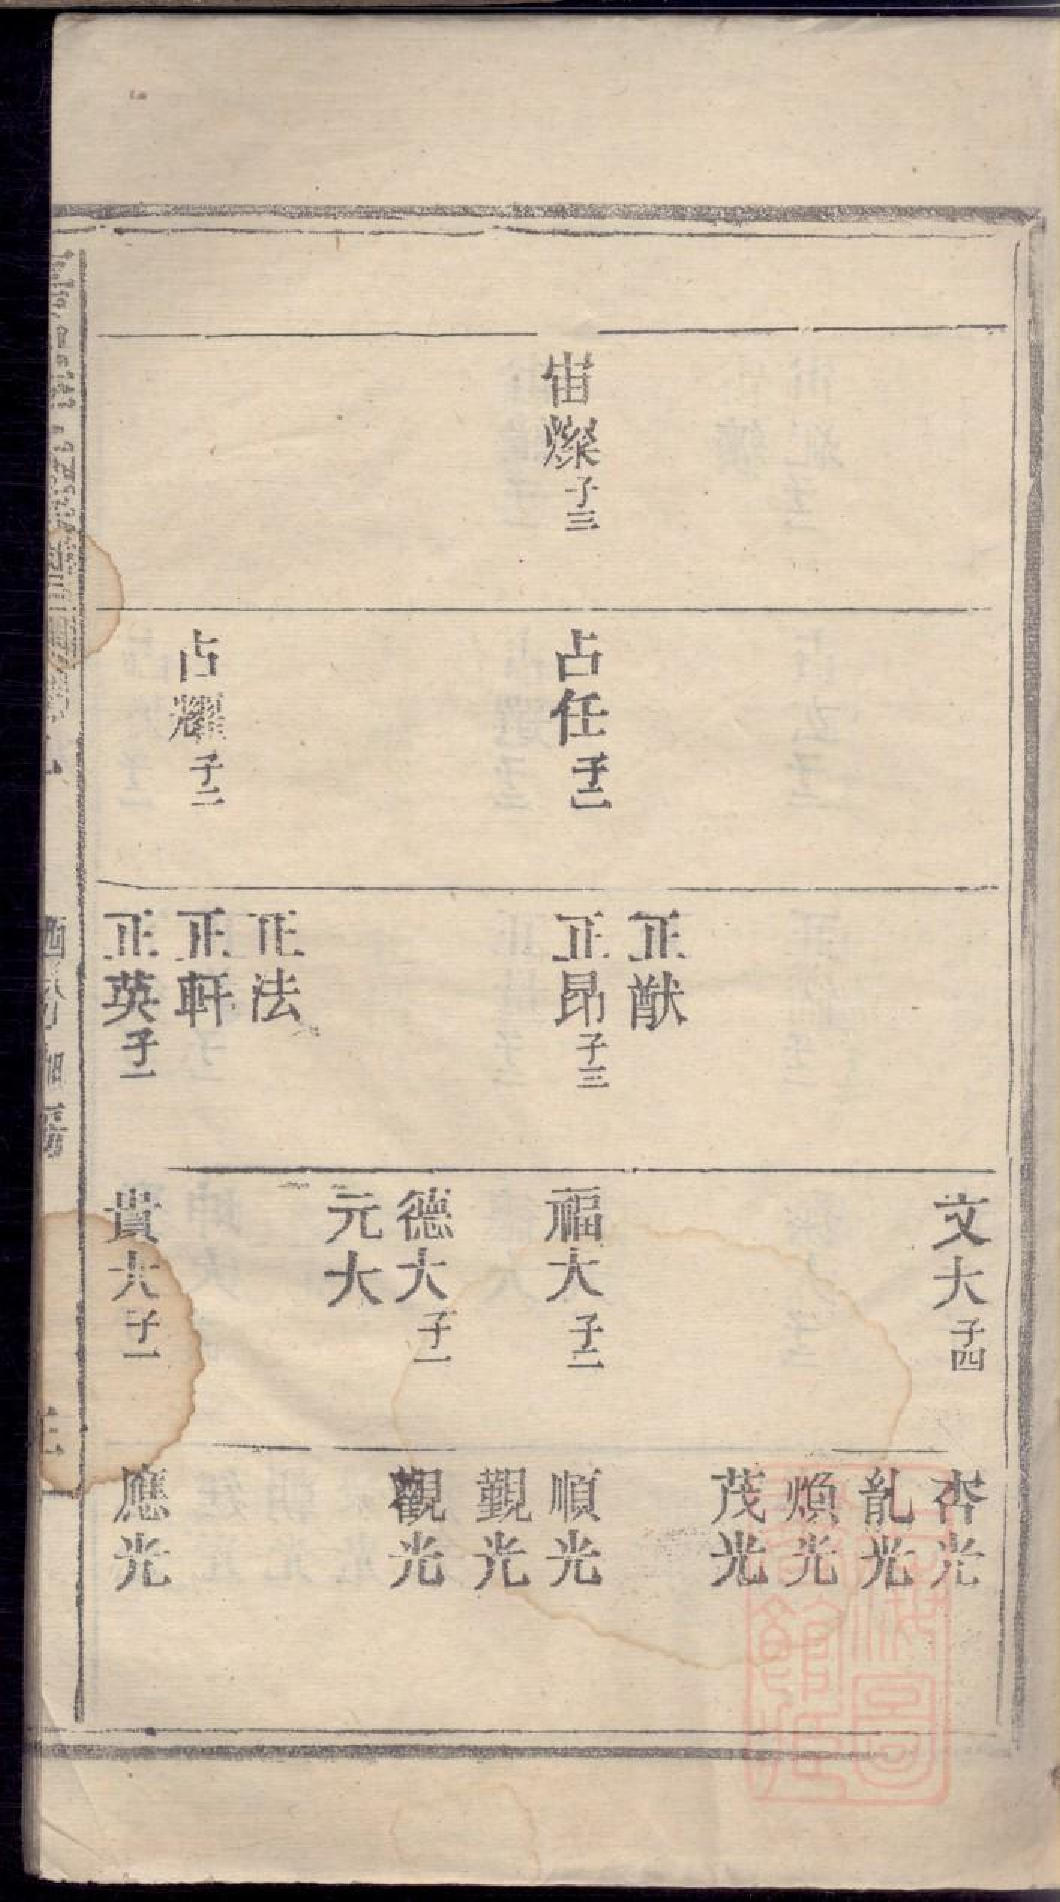 宙燦子三
占任子二
占耀子二
正猷
正昂子三
正法
正軒
正英子一
文大子四
福大子二
德大子一
元大
貴大子一
杏光
亂光
煩光
茂光
順光
覲光
觀光
應光